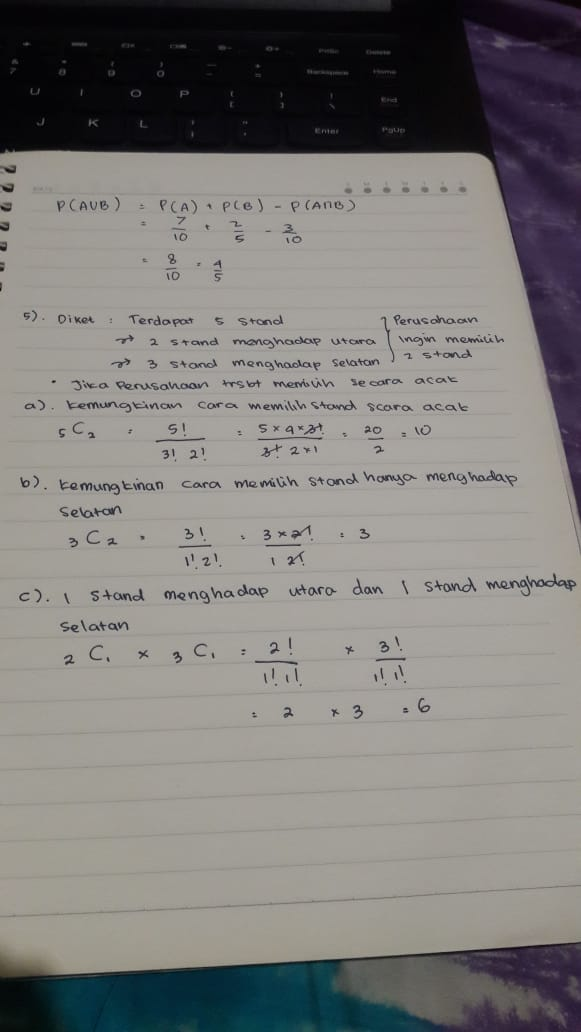 PrtSc Delete
& 7 * 8 ( 9 ) 0 _ - + = Backspace Home
U I O P { [ } ] | \ End
J K L : ; " ' Enter PgUp
P(A∪B) = P(A) + P(B) - P(A∩B)
= 7/10 + 2/5 - 3/10
= 8/10 = 4/5
5). Diket : Terdapat 5 stand
→ 2 stand menghadap utara
→ 3 stand menghadap selatan
} Perusahaan
Ingin memilih
2 stand
• Jika Perusahaan trsbt memilih secara acak
a). Kemungkinan cara memilih stand scara acak
5C2 = 5!/3! 2! = 5×4×3!/3! 2×1 = 20/2 = 10
b). Kemungkinan cara memilih stand hanya menghadap
selatan
3C2 = 3!/1! 2! = 3×2!/1 2! = 3
c). 1 stand menghadap utara dan 1 stand menghadap
selatan
2C1 × 3C1 = 2!/1! 1! × 3!/1! 1!
= 2 × 3 = 6